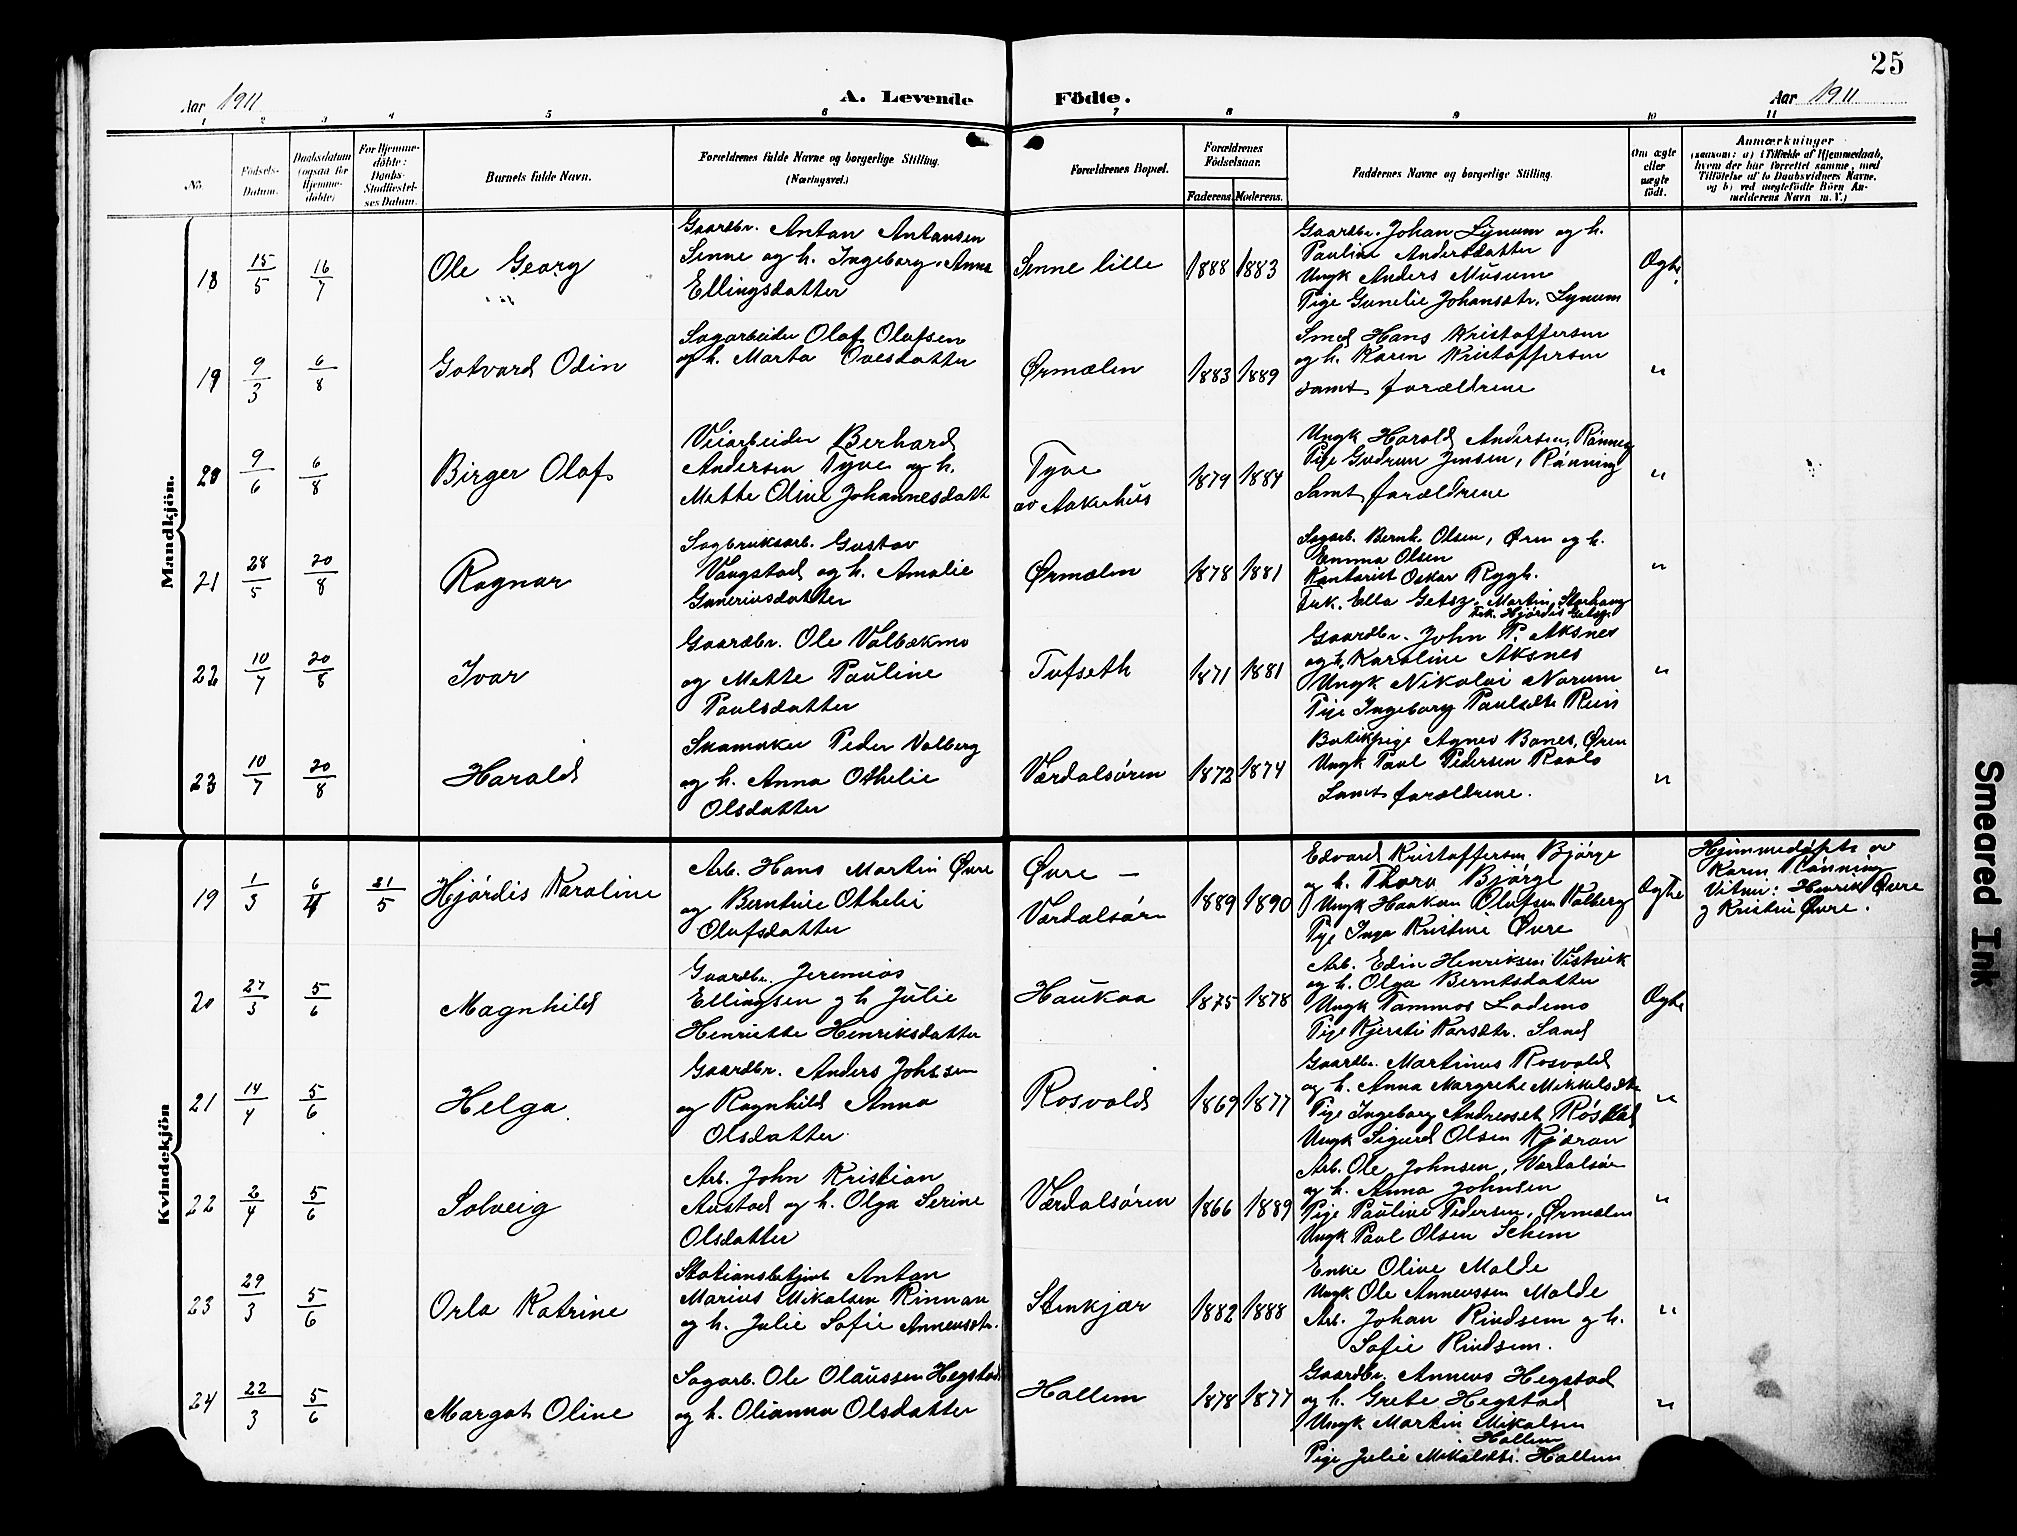 25
Aar 1911
A. Levende Födte.
Aar 1911
1 2 3 4 5 6 7 8 9 10 11
No.
Födsels-
Datum.
Daabsdatum
(ogsaa for
Hjemme-
döbte)
For Hjemme-
döbte:
Daabs-
Stadfæstel-
ses Datum.
Barnets fulde Navn.
Forældrenes fulde Navne og borgerlige Stilling.
(Næringsvei.)
Forældrenes Bopæl.
Forældrenes
Födselsaar.
Faderens. Moderens.
Faddernes Navne og borgerlige Stilling.
Om ægte
eller
uægte
født.
Anmærkninger
(saasom: a) i Tilfælde af Hjemmedaab,
hvem der har forrettet samme, med
Tilføielse af to Daabsvidners Navne,
og b) ved uægtefødte Börn An-
melderens Navn m. V.)
Mandkjön.
18
15/5
16/7
Ole Georg
Gaardbr. Antan Antansen
Senne og h. Ingeborg Anna
Ellingsdatter
Senne lille
1888 1883
Gaardbr. Johan Lynum og h.
Pauline Andersdatter
Ungk Anders Musum
Pige Gunelie Johansdtr. Lynum
Ægte
19
9/3
6/8
Gotvard Odin
Sagarbeider Olaf Olafsen
og h. Marta Ovesdatter
Ørmælen
1883 1889
Smed Hans Kristoffersen
og h. Karen Kristoffersen
samt forældrene
"
20
9/6
6/8
Birger Olaf
Veiarbeider Berhard
Andersen Tyve og h.
Mette Oline Johannesdatt
Tyve
av Aakerhus
1879 1884
Ungk Harald Andersen, Rønning
Pige Gudrun Jensen, Rønning
Samt forældrene
"
21
28/5
20/8
Ragnar
Sagbruksarb. Gustav
Vangstad og h. Amalie
Guneriusdatter
Ørmælen
1878 1881
Sagarb. Bernh. Olsen, Øren og h.
Emma Olsen
Kontorist Oskar Rygh.
Frk. Ella Getsz. Martin Storhaug
Frk. Hjørdis Getsz.
"
22
10/7
20/8
Ivar
Gaardbr. Ole Valbækmo
og Mette Pauline
Paulsdatter
Tufseth
1871 1881
Gaardbr. John P. Aksnes
og h. Karoline Aksnes
Ungk Nikolai Norum
Pige Ingeborg Paulsdtr Rein
"
23
10/7
20/8
Harald
Skomaker Peder Valberg
og h. Anna Othelie
Olsdatter
Værdalsøren
1872 1874
Butikpige Agnes Bones, Øren
Ungk Paul Pedersen
Samt forældrene.
"
Kvindekjön
19
1/3
6/4
21/5
Hjørdis Karoline
Arb. Hans Martin Øvre
og Berntine Othelie
Olufsdatter
Øvre –
Værdalsør
1889 1890
Edvard Kristoffersen Bjørge
og h. Thora Bjørge
Ungk Haakon Olufsen Valberg
Pige Inga Kristine Øvre
Ægte
Hjemmedøpt av
Karen Rønning
Vitner: Henrik Øvre
og Kristine Øvre.
20
27/3
5/6
Magnhild
Gaardbr. Jeremias
Ellingsen og h Julie
Henriette Henriksdatter
Haukaa
1875 1878
Arb. Edin Henriksen Vistvik
og h. Olga Berntsdatter
Ungk Tammos Lademo
Pige Kjersti Larsdtr. Sand
Ægte
21
14/4
5/6
Helga
Gaardbr. Anders Johnsen
og Ragnhild Anna
Olsdatter
Rosvold
1869 1877
Gaardbr. Martinus Rosvold
og h. Anna Margrete Mikkelsdtr
Pige Ingeborg Andreasdt. Røstad
Ungk Sigurd Olsen Kjæran
"
22
2/4
5/6
Solveig
Arb. John Kristian
Austad og h. Olga Serine
Olsdatter
Værdalsøren
1866 1889
Arb. Ole Johnsen, Værdalsør
og h. Anna Johnsen
Pige Pauline Pedersen, Ørmælen
Ungk Paul Olsen Schem
"
23
29/3
5/6
Orla Katrine
Stationsbetjent Antan
Marius Mikalsen Rinnan
og h. Julie Sofie Anneusdtr.
Stenkjær
1882 1888
Enke Olive Molde
Ungk Ole Anneussen Molde
Arb. Johan Rindsem og h.
Sofie Rindsem.
"
24
22/3
5/6
Margot Oline
Sagarb. Ole Olaussen Hegstad
og h. Olianna Olsdatter
Hallem
1878 1877
Gaardbr. Anneus Hegstad
og h. Grete Hegstad
Ungk Martin Mikalsen
Hallem
Pige Julie Mikalsdtr. Hallem
"
Smeared Ink